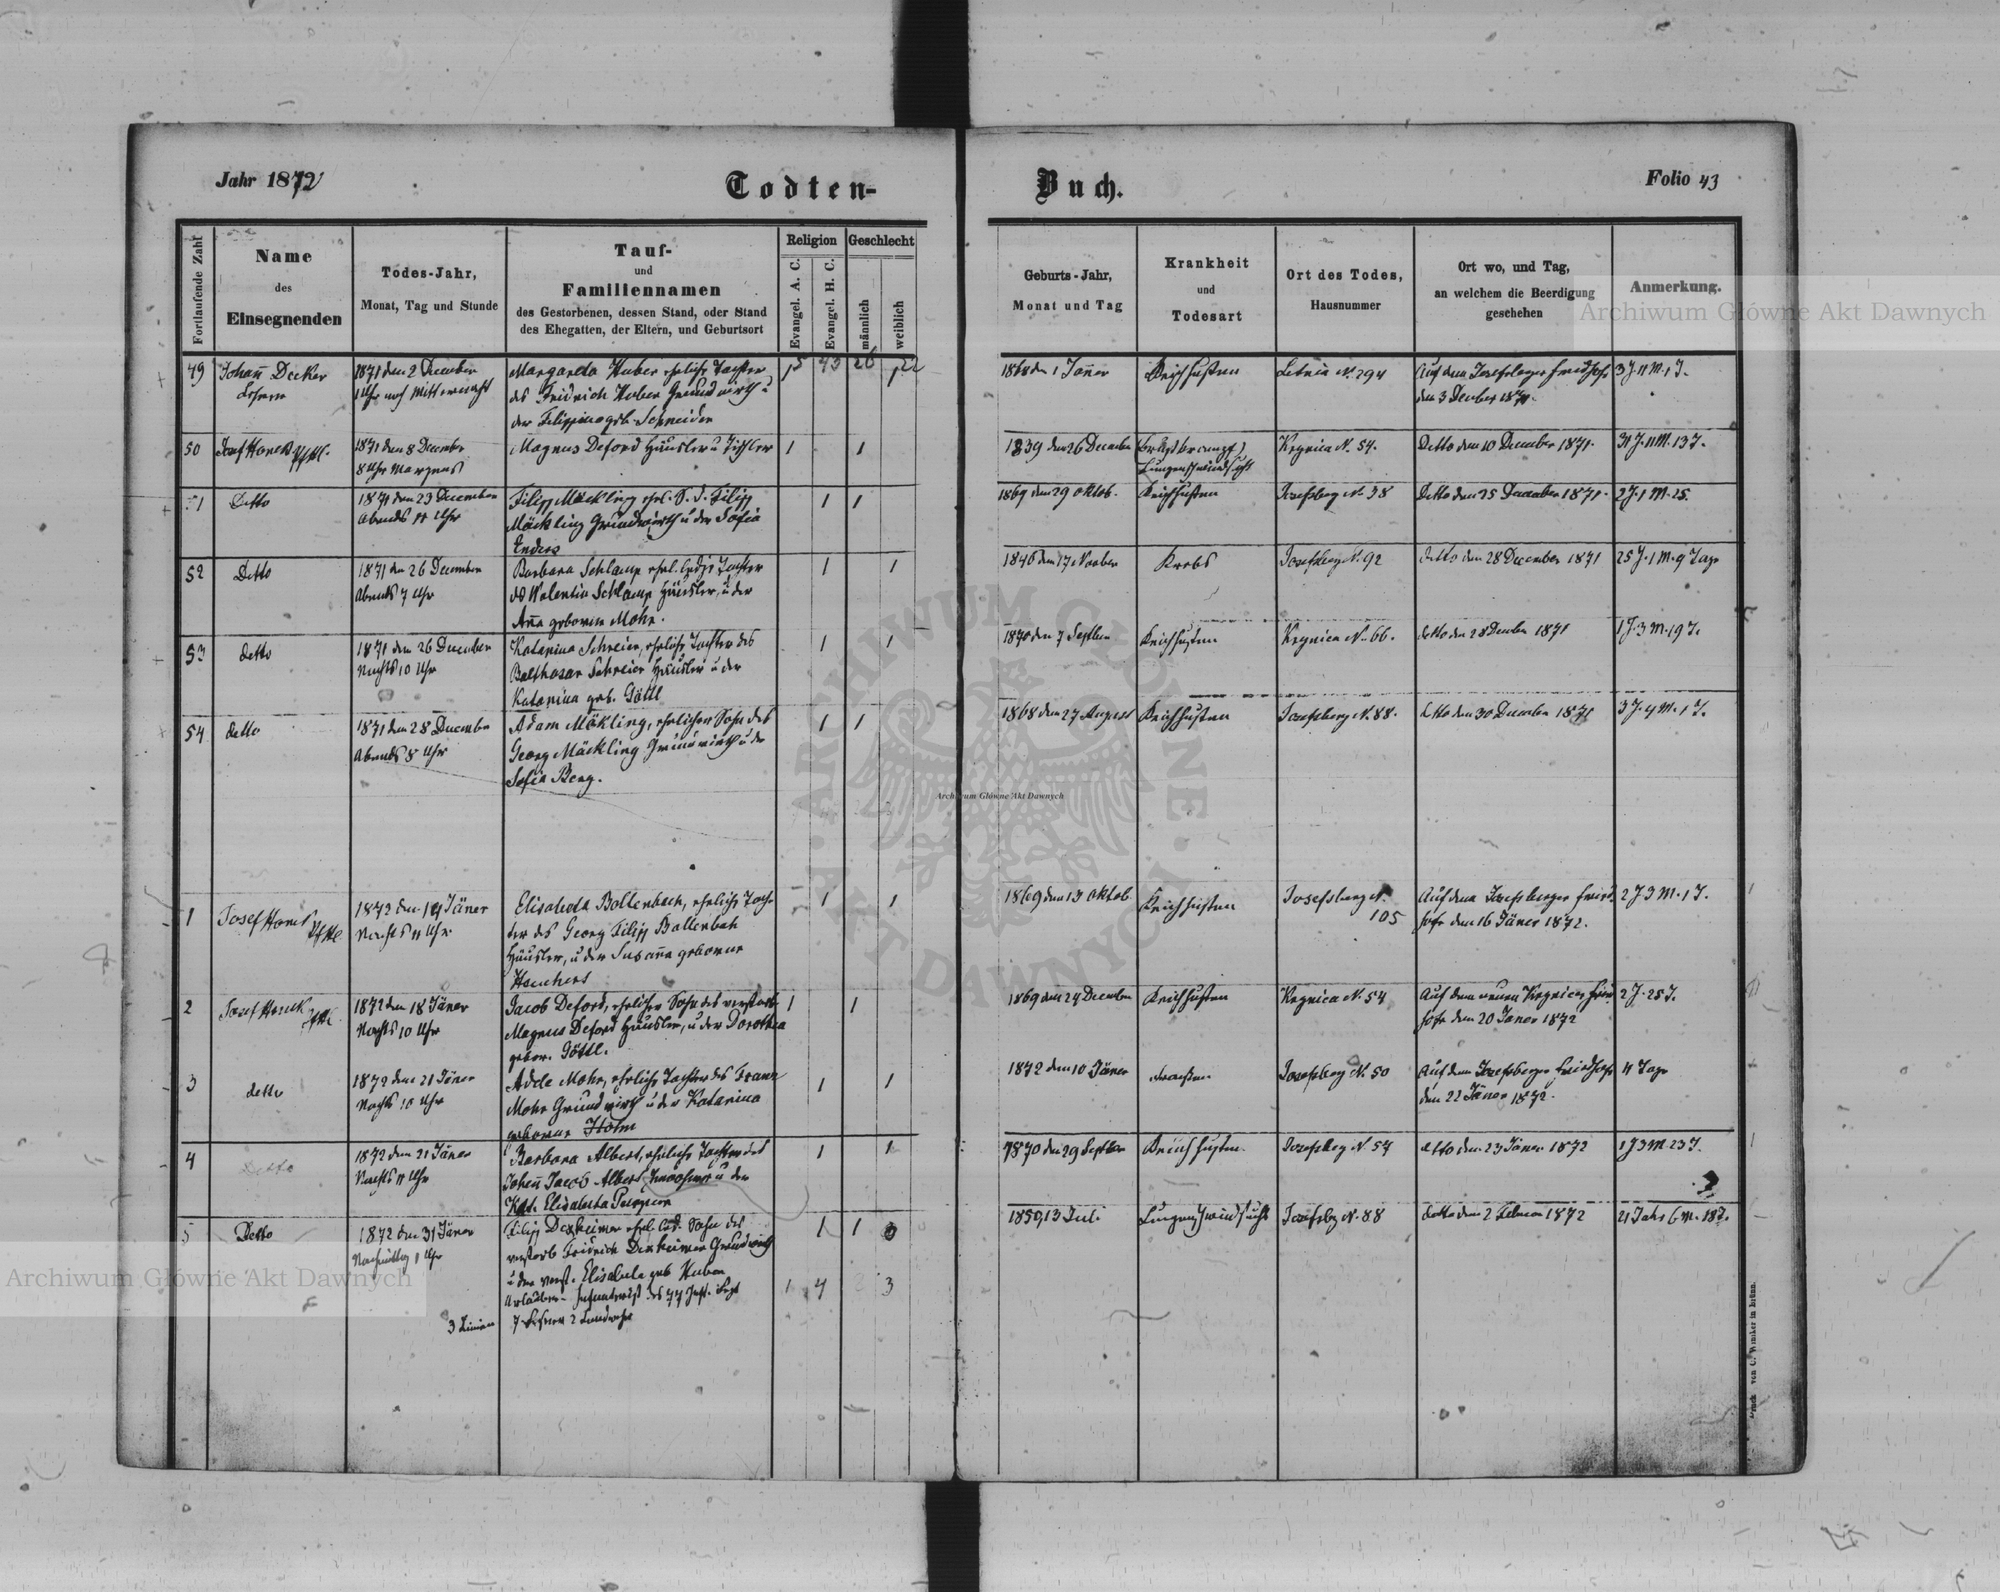 Jahr 1872
Todten-
Buch.
Folio 43
Fortlaufende Zahl
Name
des
Einsegnenden
Todes-Jahr,
Monat, Tag und Stunde
Tauf-
und
Familiennamen
des Gestorbenen, dessen Stand, oder Stand
des Ehegatten, der Eltern, und Geburtsort
Religion
Evangel. A. C.
Evangel. H. C.
Geschlecht
männlich
weiblich
Geburts-Jahr,
Monat und Tag
Krankheit
und
Todesart
Ort des Todes,
Hausnummer
Ort wo, und Tag,
an welchem die Beerdigung
geschehen
Anmerkung.
49
Johañ Decker
Lehrer
1871 den 2 December
1 Uhr nach Mitternacht
Margareta Huber ehelich Tochter
des Fridrich Huber Grundwirth u
der Filippina geb. Schneider
5 43 26 22
1868 den 1 Jañer
Keichhusten
Letnia N. 294
Auf dem Josefsberger Friedhofe
den 3 December 1871.
3 J. 11 M. 1 T.
50
Josef Honek
1871 den 8 December
8 Uhr Morgens
Magnus Deford Häusler u Tischler
1 1
1839 den 26 December
Lungenschwindsucht
Krynica N. 54.
Detto den 10 December 1871.
31 J. 11 M. 13 T.
51
Detto
1871 den 23 December
Abends 11 Uhr
Filipp Mäckling ehel. S. d. Filipp
Mäckling Grundwirth u der Sofia
Enders
1 1
1869 den 29 Oktob.
Keichhusten
Josefsberg N. 38
Detto den 25 December 1871.
2 J. 1 M. 25.
52
Detto
1871 den 26 December
Abends 7 Uhr
Barbara Schlamp ehel. ledige Tochter
des Valentin Schlamp Häusler, u der
Aña geborene Mohr.
1 1
1846 den 17 November
Krebs
Josefsberg N. 92
Detto den 28 December 1871
25 J. 1 M. 9 Tage
53
detto
1871 den 26 December
Nachts 10 Uhr
Katarina Schreier, eheliche Tochter des
Balthasar Schreier Häusler u der
Katarina geb. Göttl
1 1
1870 den 7 September
Keichhusten
Krynica N. 66.
detto den 28 December 1871
1 J. 3 M. 19 T.
54
detto
1871 den 28 December
Abends 8 Uhr
Adam Mäkling, ehelicher Sohn des
Georg Mäckling Grundwirth u der
Sofia Berg.
1 1
1868 den 27 August
Keichhusten
Josefsberg N. 88.
detto den 30 December 1871
3 J. 4 M. 1 T.
1
Josef Honek
1872 den 14 Jäner
Nachts 11 Uhr
Elisabeta Bollenbach, eheliche Toch-
ter des Georg Filipp Bollenbach
Häusler, u der Susaña geborene
1 1
1869 den 13 Oktob
Keichhusten
Josefsberg N.
105
Auf dem Josefsberger Fried-
hofe den 16 Jäner 1872.
2 J 3 M. 1 T.
2
Josef Honek
1872 den 18 Jäner
Nachts 10 Uhr
Jacob Deford, ehelicher Sohn des verstorb.
Magnus Deford Häusler, u der Dorothea
gebor. Göttl.
1 1
1869 den 24 December
Keichhusten
Krynica N. 54
Auf dem neuen Krynicer Fried-
hofe den 20 Janer 1872
2 J. 25 T.
3
detto
1872 den 21 Jäner
Nachts 10 Uhr
Adele Mohr, eheliche Tochter des Franz
Mohr Grundwirth u der Katarina
geborene Holm
1 1
1872 den 10 Jäner
Fraeßen
Josefsberg N. 50
Auf dem Josefsberger Friedhofe
den 22 Jäner 1872.
11 Tage
4
Detto
1872 den 21 Jäner
Nachts 11 Uhr
Barbara Albert, eheliche Tochter des
Johañ Jacob Albert Inwohner u der
Kat. Elisabeta
1 1
1870 den 29 September
Keichhusten
Josefsberg N 54
detto den 23 Jäner 1872
1 J 3 M 23 T.
3
5
Detto
1872 den 31 Jäner
Nachmittag 1 Uhr
Filipp Dexheimer ehel. led. Sohn des
verstorb Fridrich Dexheimer Grundwirth
u der verst. Elisabeta geb Huber
Urlauber- Infanterist des 77 Inft. Regt
1 1 0
1850, 13 Juli
Lungenschwindsucht
Josefsbg N. 88
detto den 2 Februar 1872
21 Jahr 6 M. 18 T.
1 4 2 3
Druck von C. Winiker in Brünn.
Archiwum Główne Akt Dawnych
Archiwum Główne Akt Dawnych
Archiwum Główne Akt Dawnych
ARCHIWUM GŁÓWNE AKT DAWNYCH